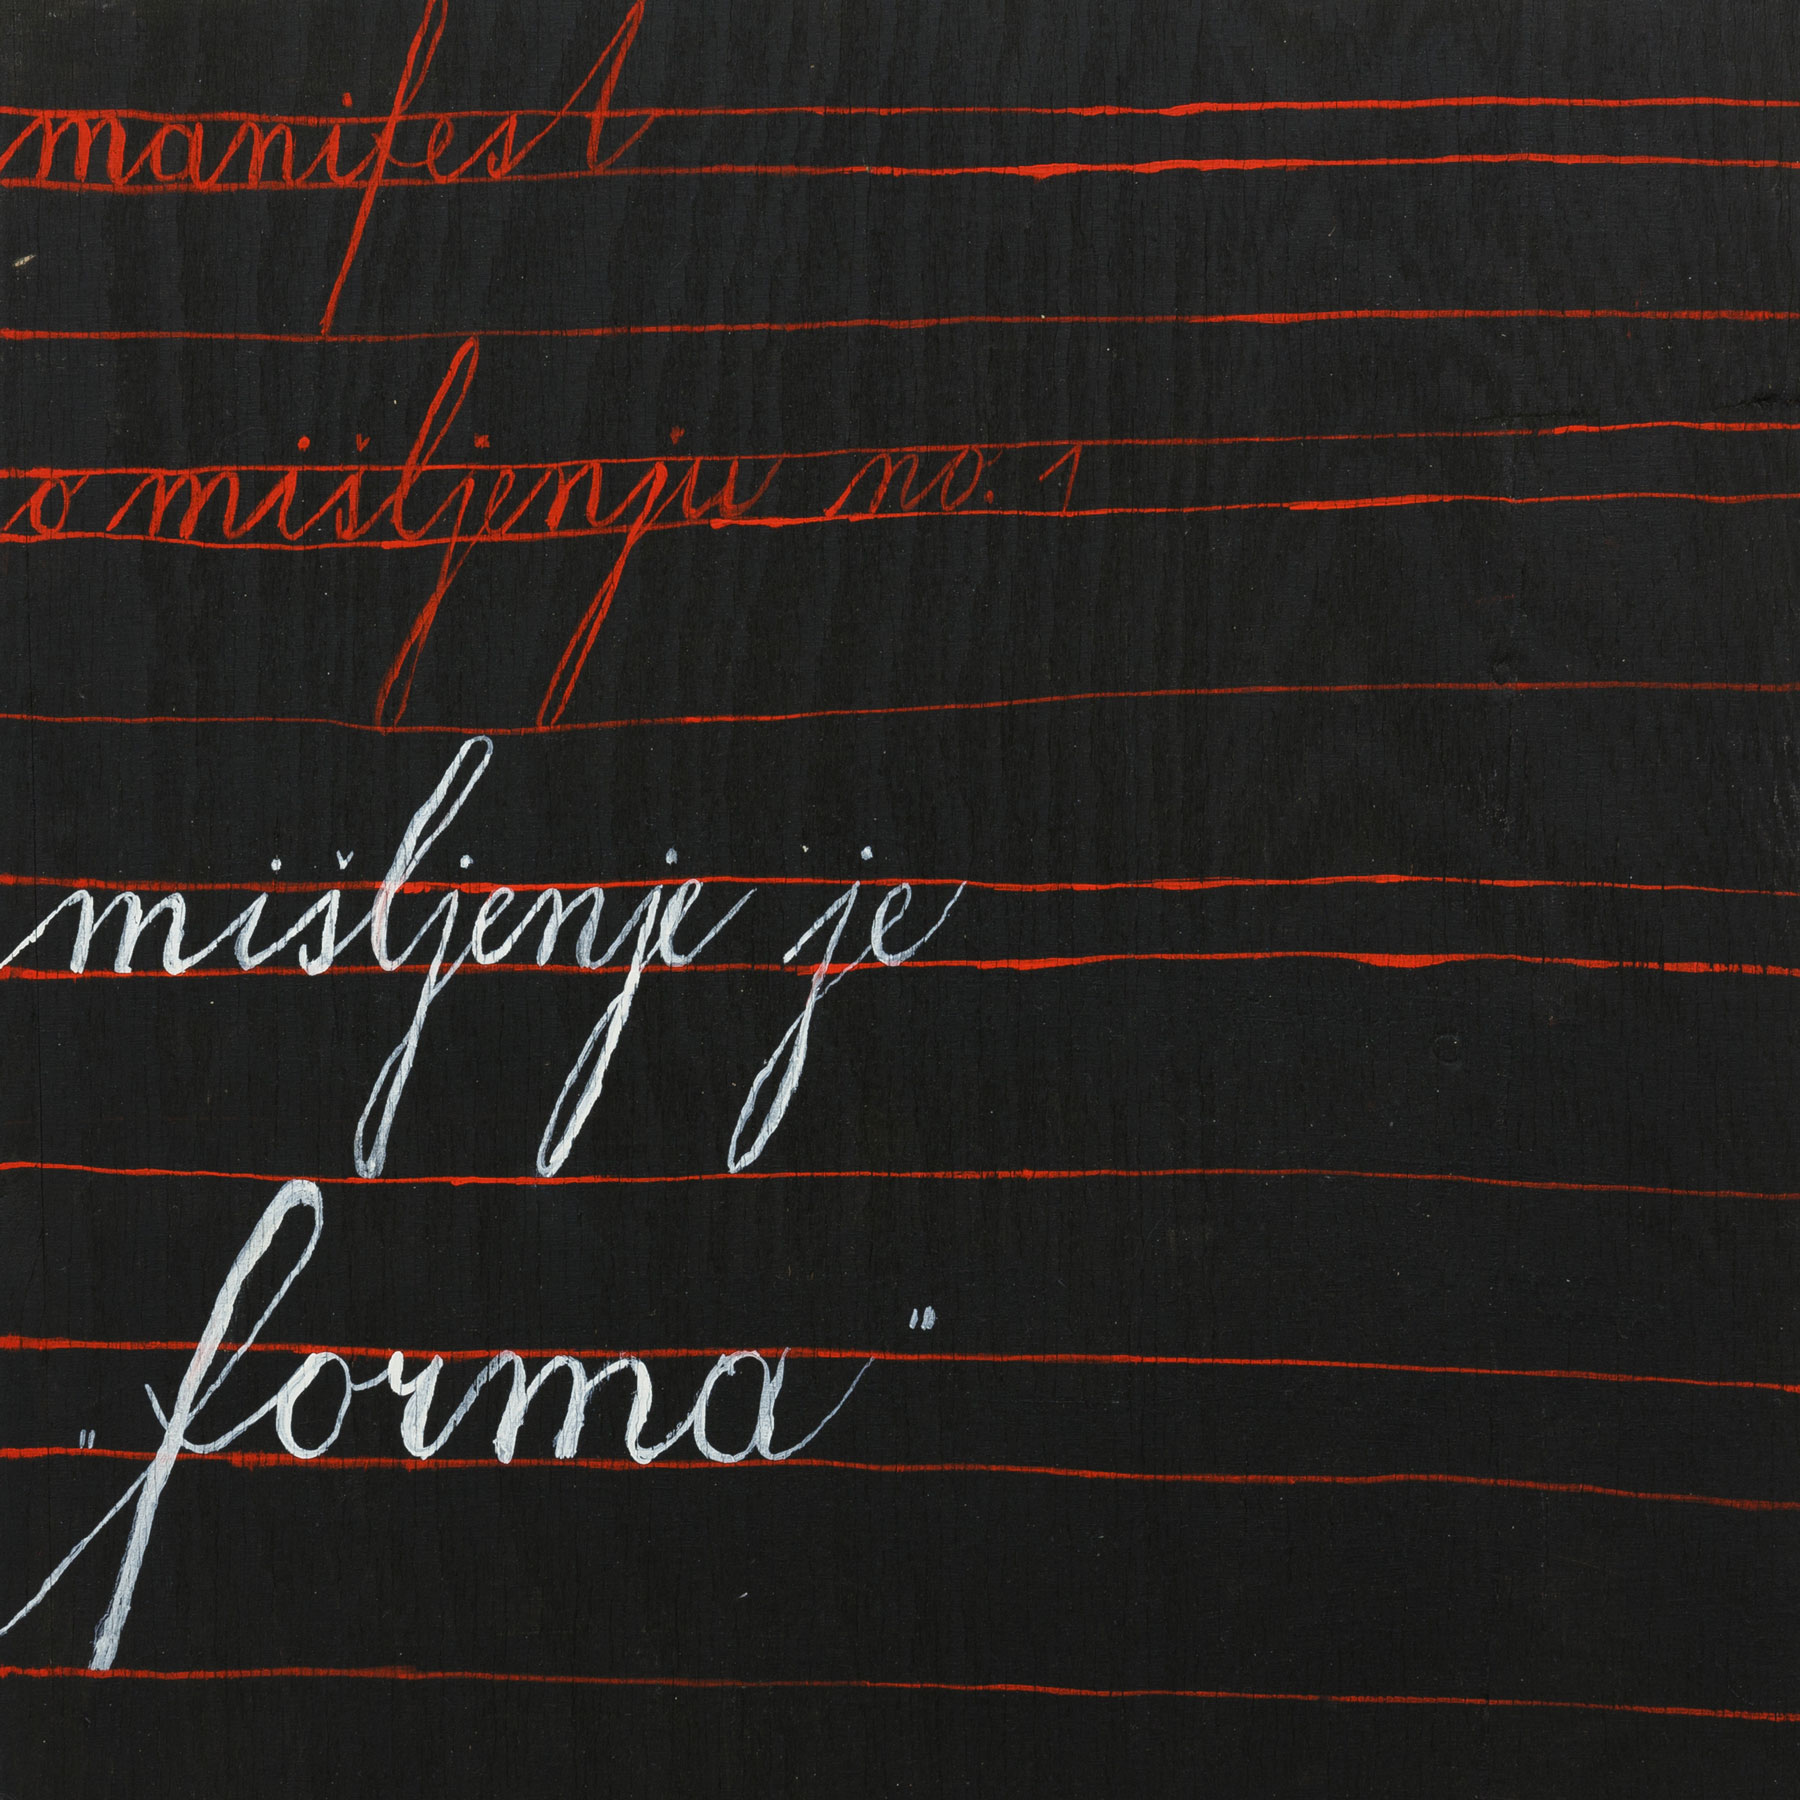 manifest
o mišljenju no. 1
mišljenje je
„forma"